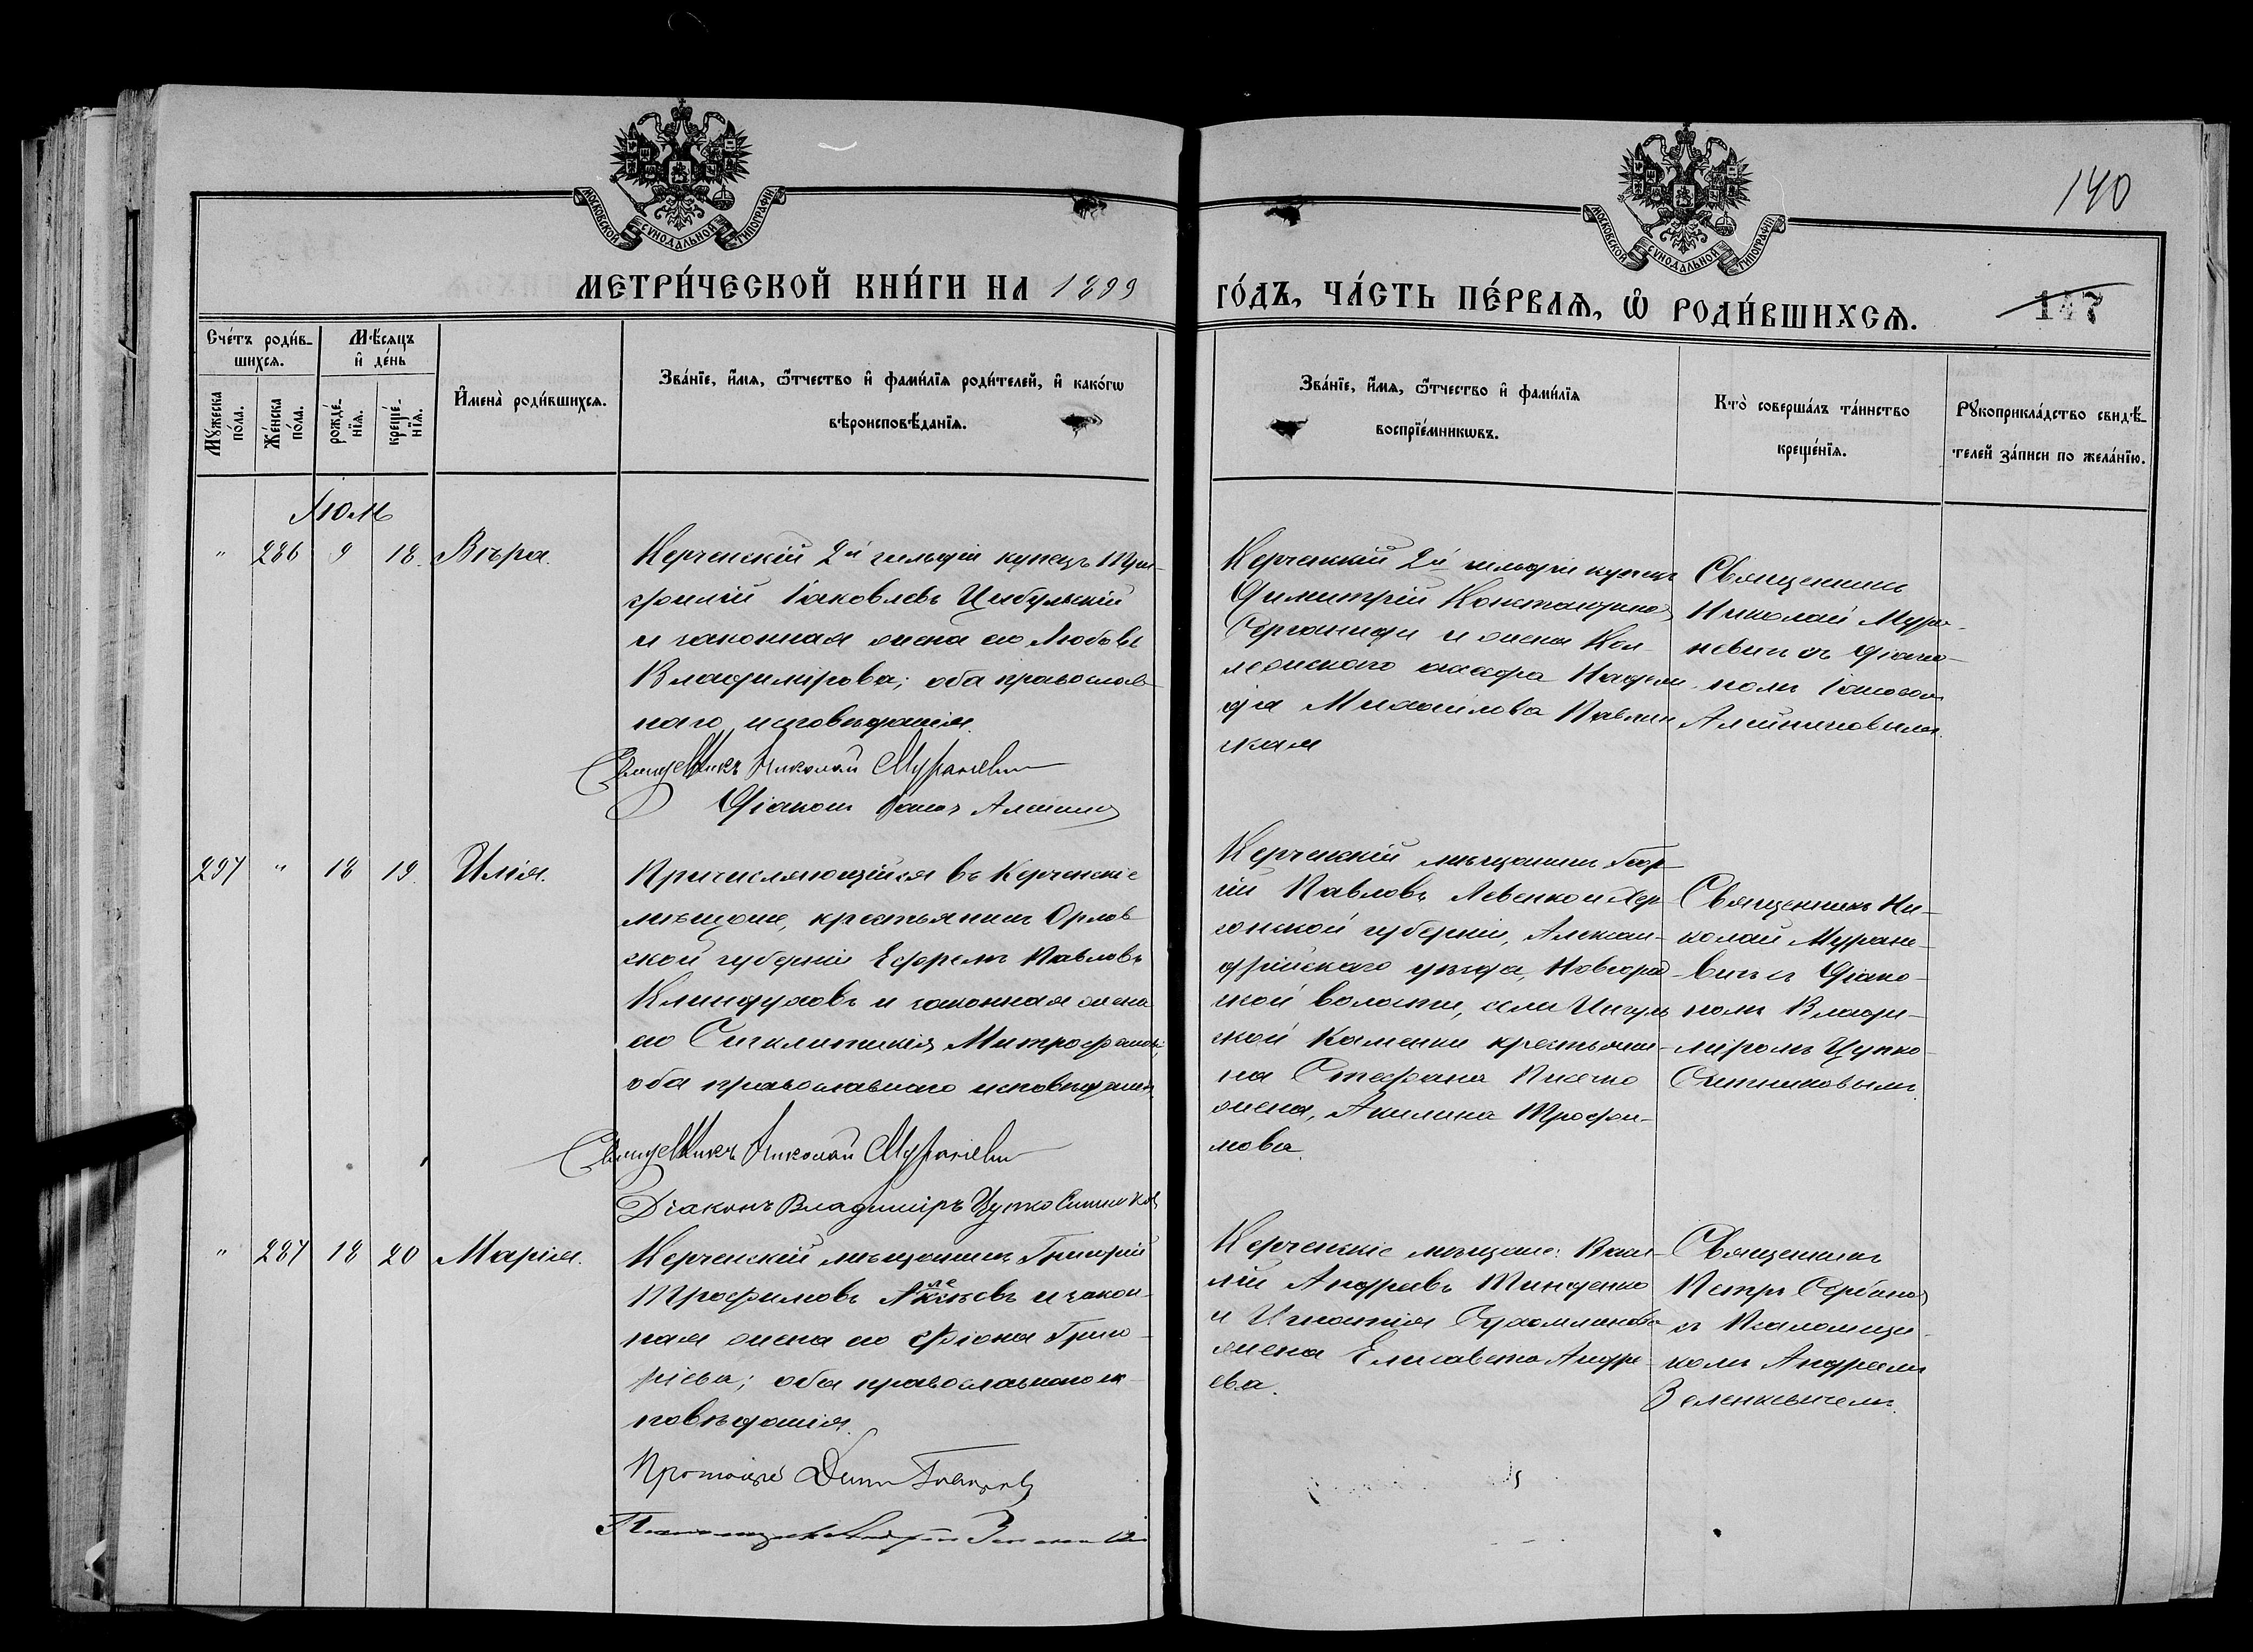 140
МОСКОВСКОЙ СѴНОДАЛЬНОЙ ТИПОГРАФІИ
МОСКОВСКОЙ СѴНОДАЛЬНОЙ ТИПОГРАФІИ
МЕТРИ́ЧЕСКОЙ КНИ́ГИ НА 1899
ГО́ДЪ, ЧА́СТЬ ПЕ́РВАѦ, Ѡ РОДИ́ВШИХСѦ.
147
Сче́тъ роди́в-
шихся.
Мѣ́сяцъ
и҆ де́нь
Мꙋ́жеска
по́ла.
Же́нска
по́ла.
рожде́-
нїѧ.
креще́-
нїѧ.
И҆мена̀ роди́вшихся.
Зва́нїе, и҆́мѧ, ѻ҆́тчество и҆ фами́лїѧ роди́телей, и҆ како́гѡ
вѣроисповѣ́данїѧ.
Зва́нїе, и҆́мѧ, ѻ҆́тчество и҆ фами́лїѧ
воспрїе́мникѡвъ.
Кто̀ соверша́лъ та́инство
креще́нїѧ.
Рꙋкоприкла́дство свидѣ́-
телей за́писи по жела́нїю.
Іюль
" 286 9 18. Вѣра.
Керченскій 2й гильдіи купецъ Три-
филій Іаковлевъ Цыбульскій
и законная жена его Любовь
Владимірова; оба православ-
наго исповѣданія.
Священникъ Николай Мураневичъ
Діаконъ Іаковъ
Керченскій 2й гильдіи купецъ
Димитрій Константиновъ
и жена Кол-
лежскаго Надеж-
да Михаилова Павлин-
ская
Священникъ
Николай Мура-
невичъ съ діако-
номъ Іаковомъ
297 " 18 19. Илія.
Причисляющійся въ Керченскіе
мѣщане, крестьянинъ Орлов-
ской губерніи Ефремъ Павловъ
Климдуховъ и законная жена
его Синклитикія Митрофанова;
оба православнаго исповѣданія.
Священникъ Николай Мураневичъ
Діаконъ Владиміръ Цупко Ситниковъ
Керченскій мѣщанинъ Геор-
гій Павловъ Левенко и Хер-
сонской губерніи, Алексан-
дрійскаго уѣзда, Новград-
ской волости, села Ингуль-
ской Каменки крестьяни-
на Стефана
жена, Акилина Трофи-
мова.
Священникъ Ни-
колай Муране-
вичъ съ діако-
номъ Влади-
міромъ Цупко-
Ситниковымъ.
" 287 18 20 Марія.
Керченскій мѣщанинъ Григорій
Трофимовъ и закон-
ная жена его Фіона Григо-
ріева; оба православнаго ис-
повѣданія.
Протоіерей
Псаломщикъ Андрей
Керченскіе мѣщане: Васи-
лій Андреевъ Тищенко
и Игнатія Сухомлинова
жена Елисавета Андре-
ева.
Священникъ
Петръ Сербиновъ
съ Псаломщи-
комъ Андреемъ
Зеленкевичемъ.